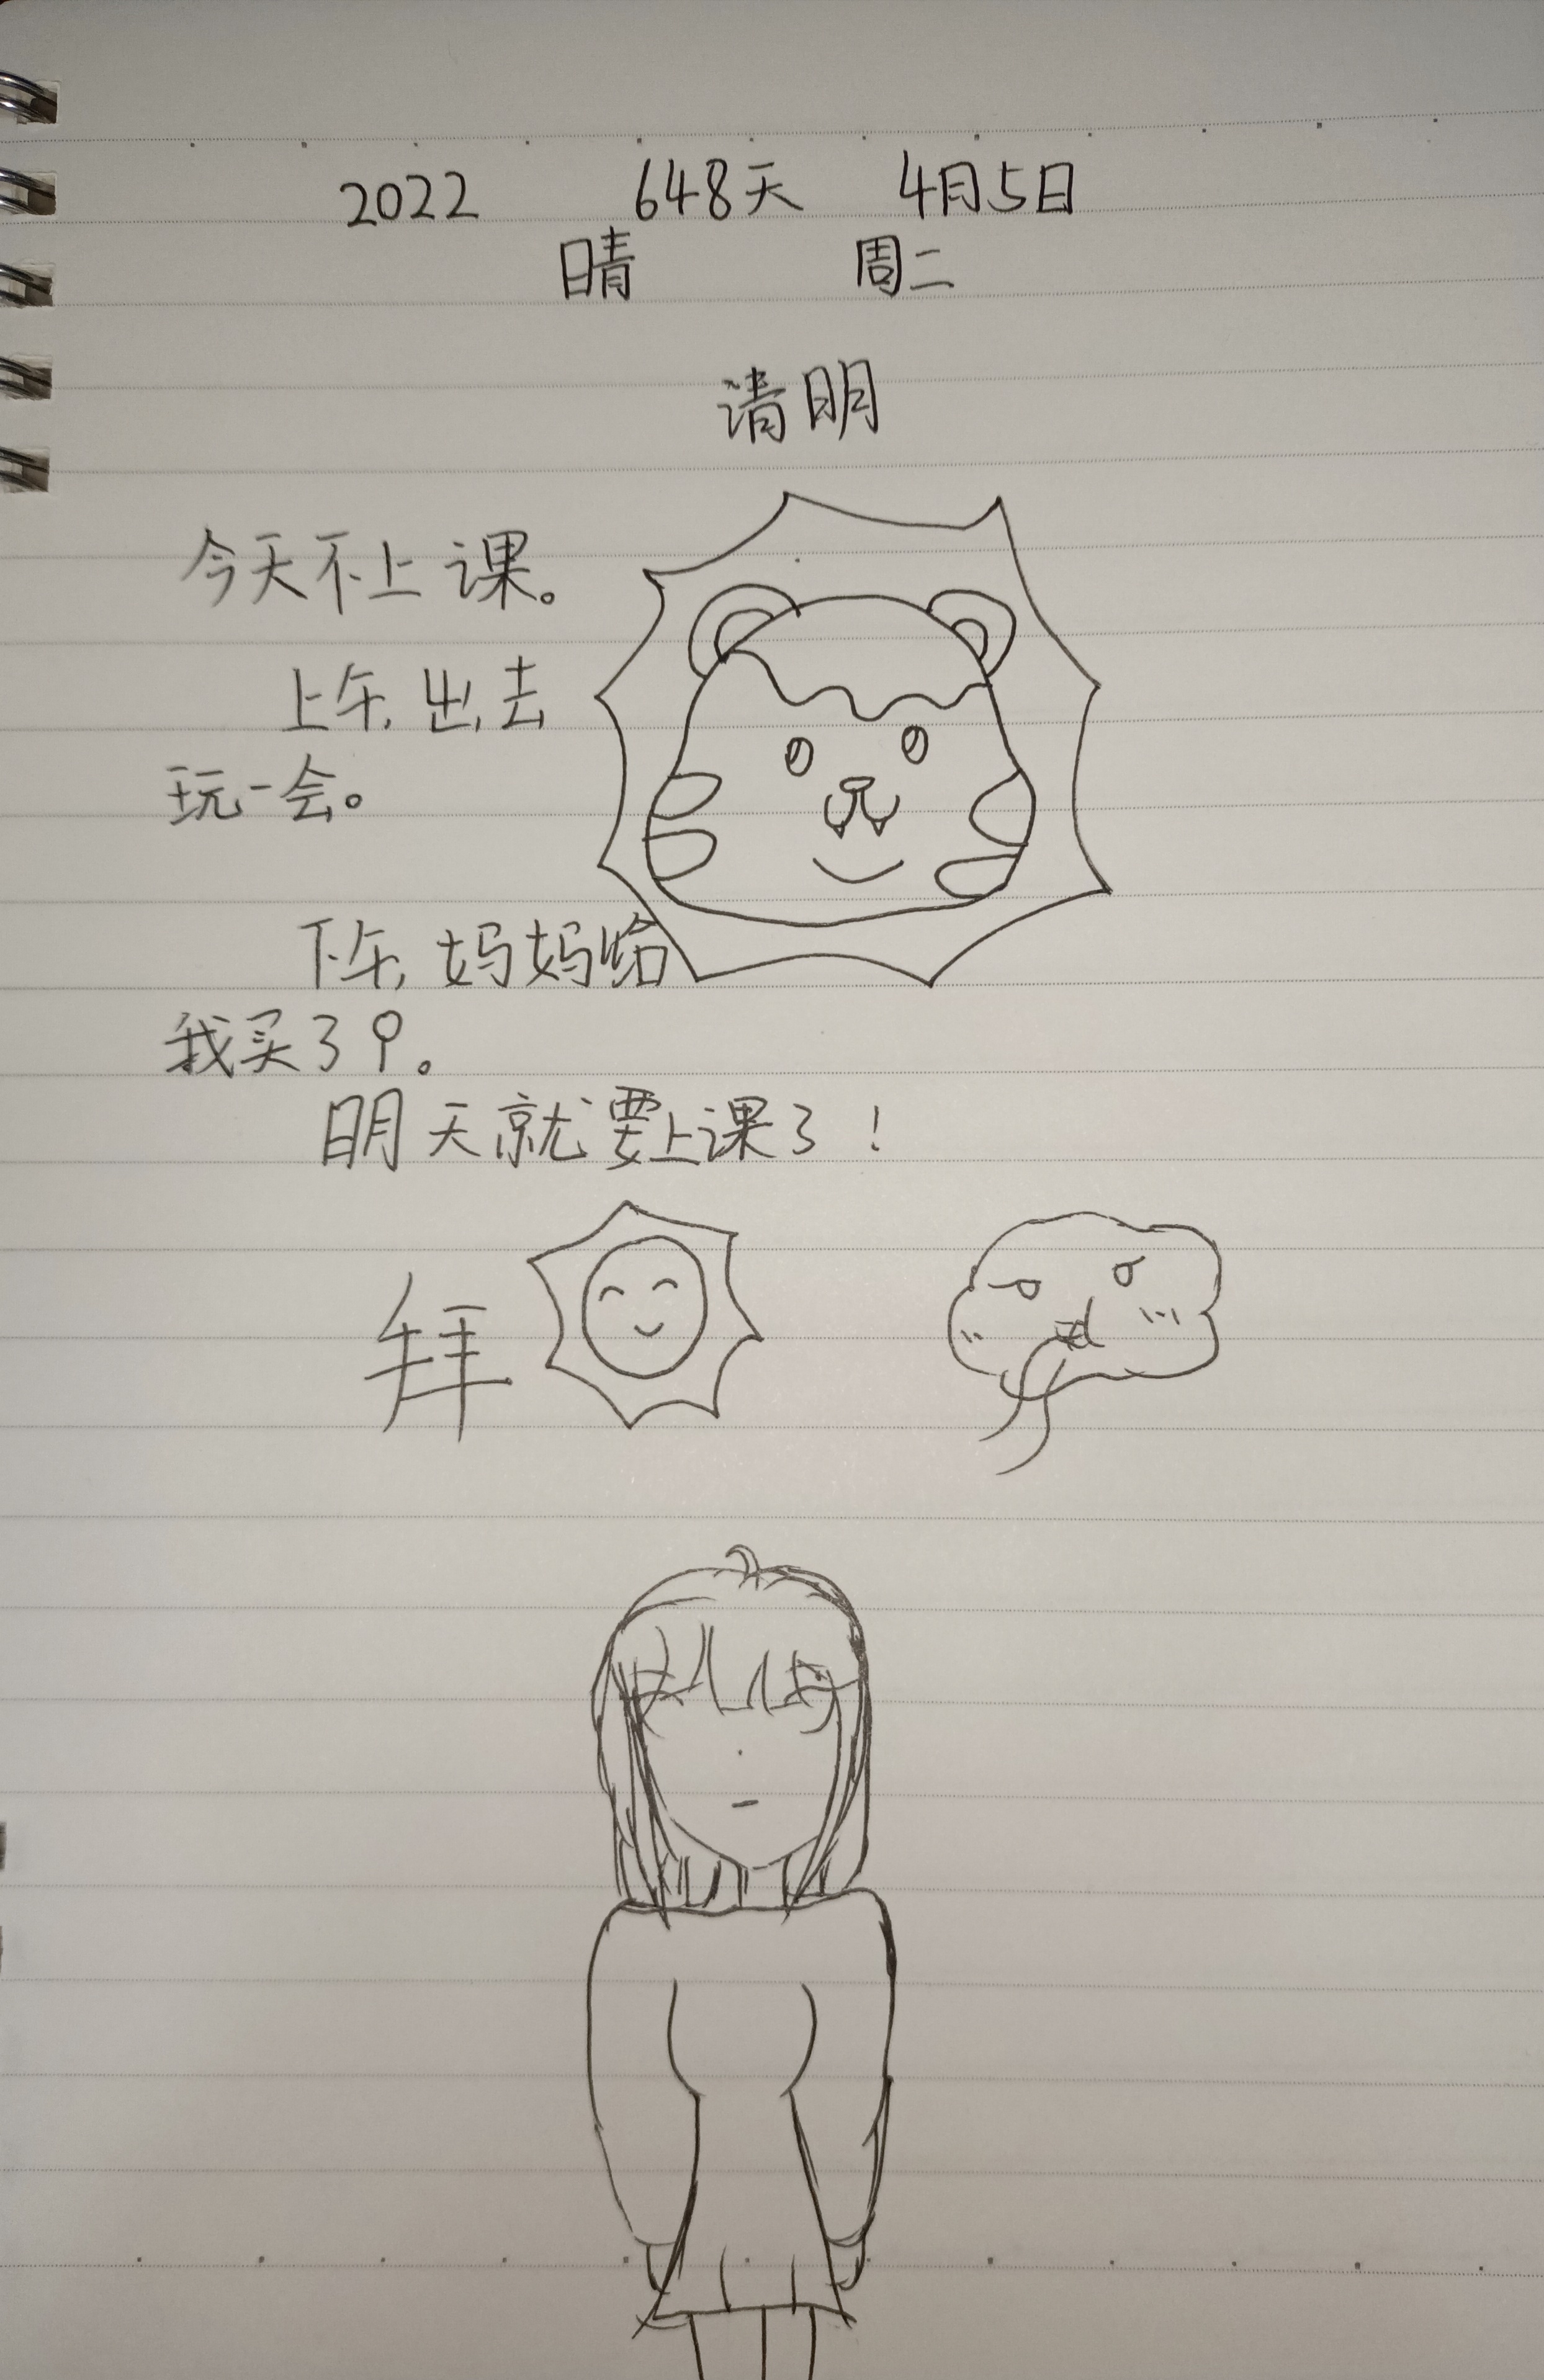 2022 648天 4月5日
晴 周二
清明
今天不上课。
上午,出去
玩一会。
下午,妈妈给
我买了。
明天就要上课了!
拜